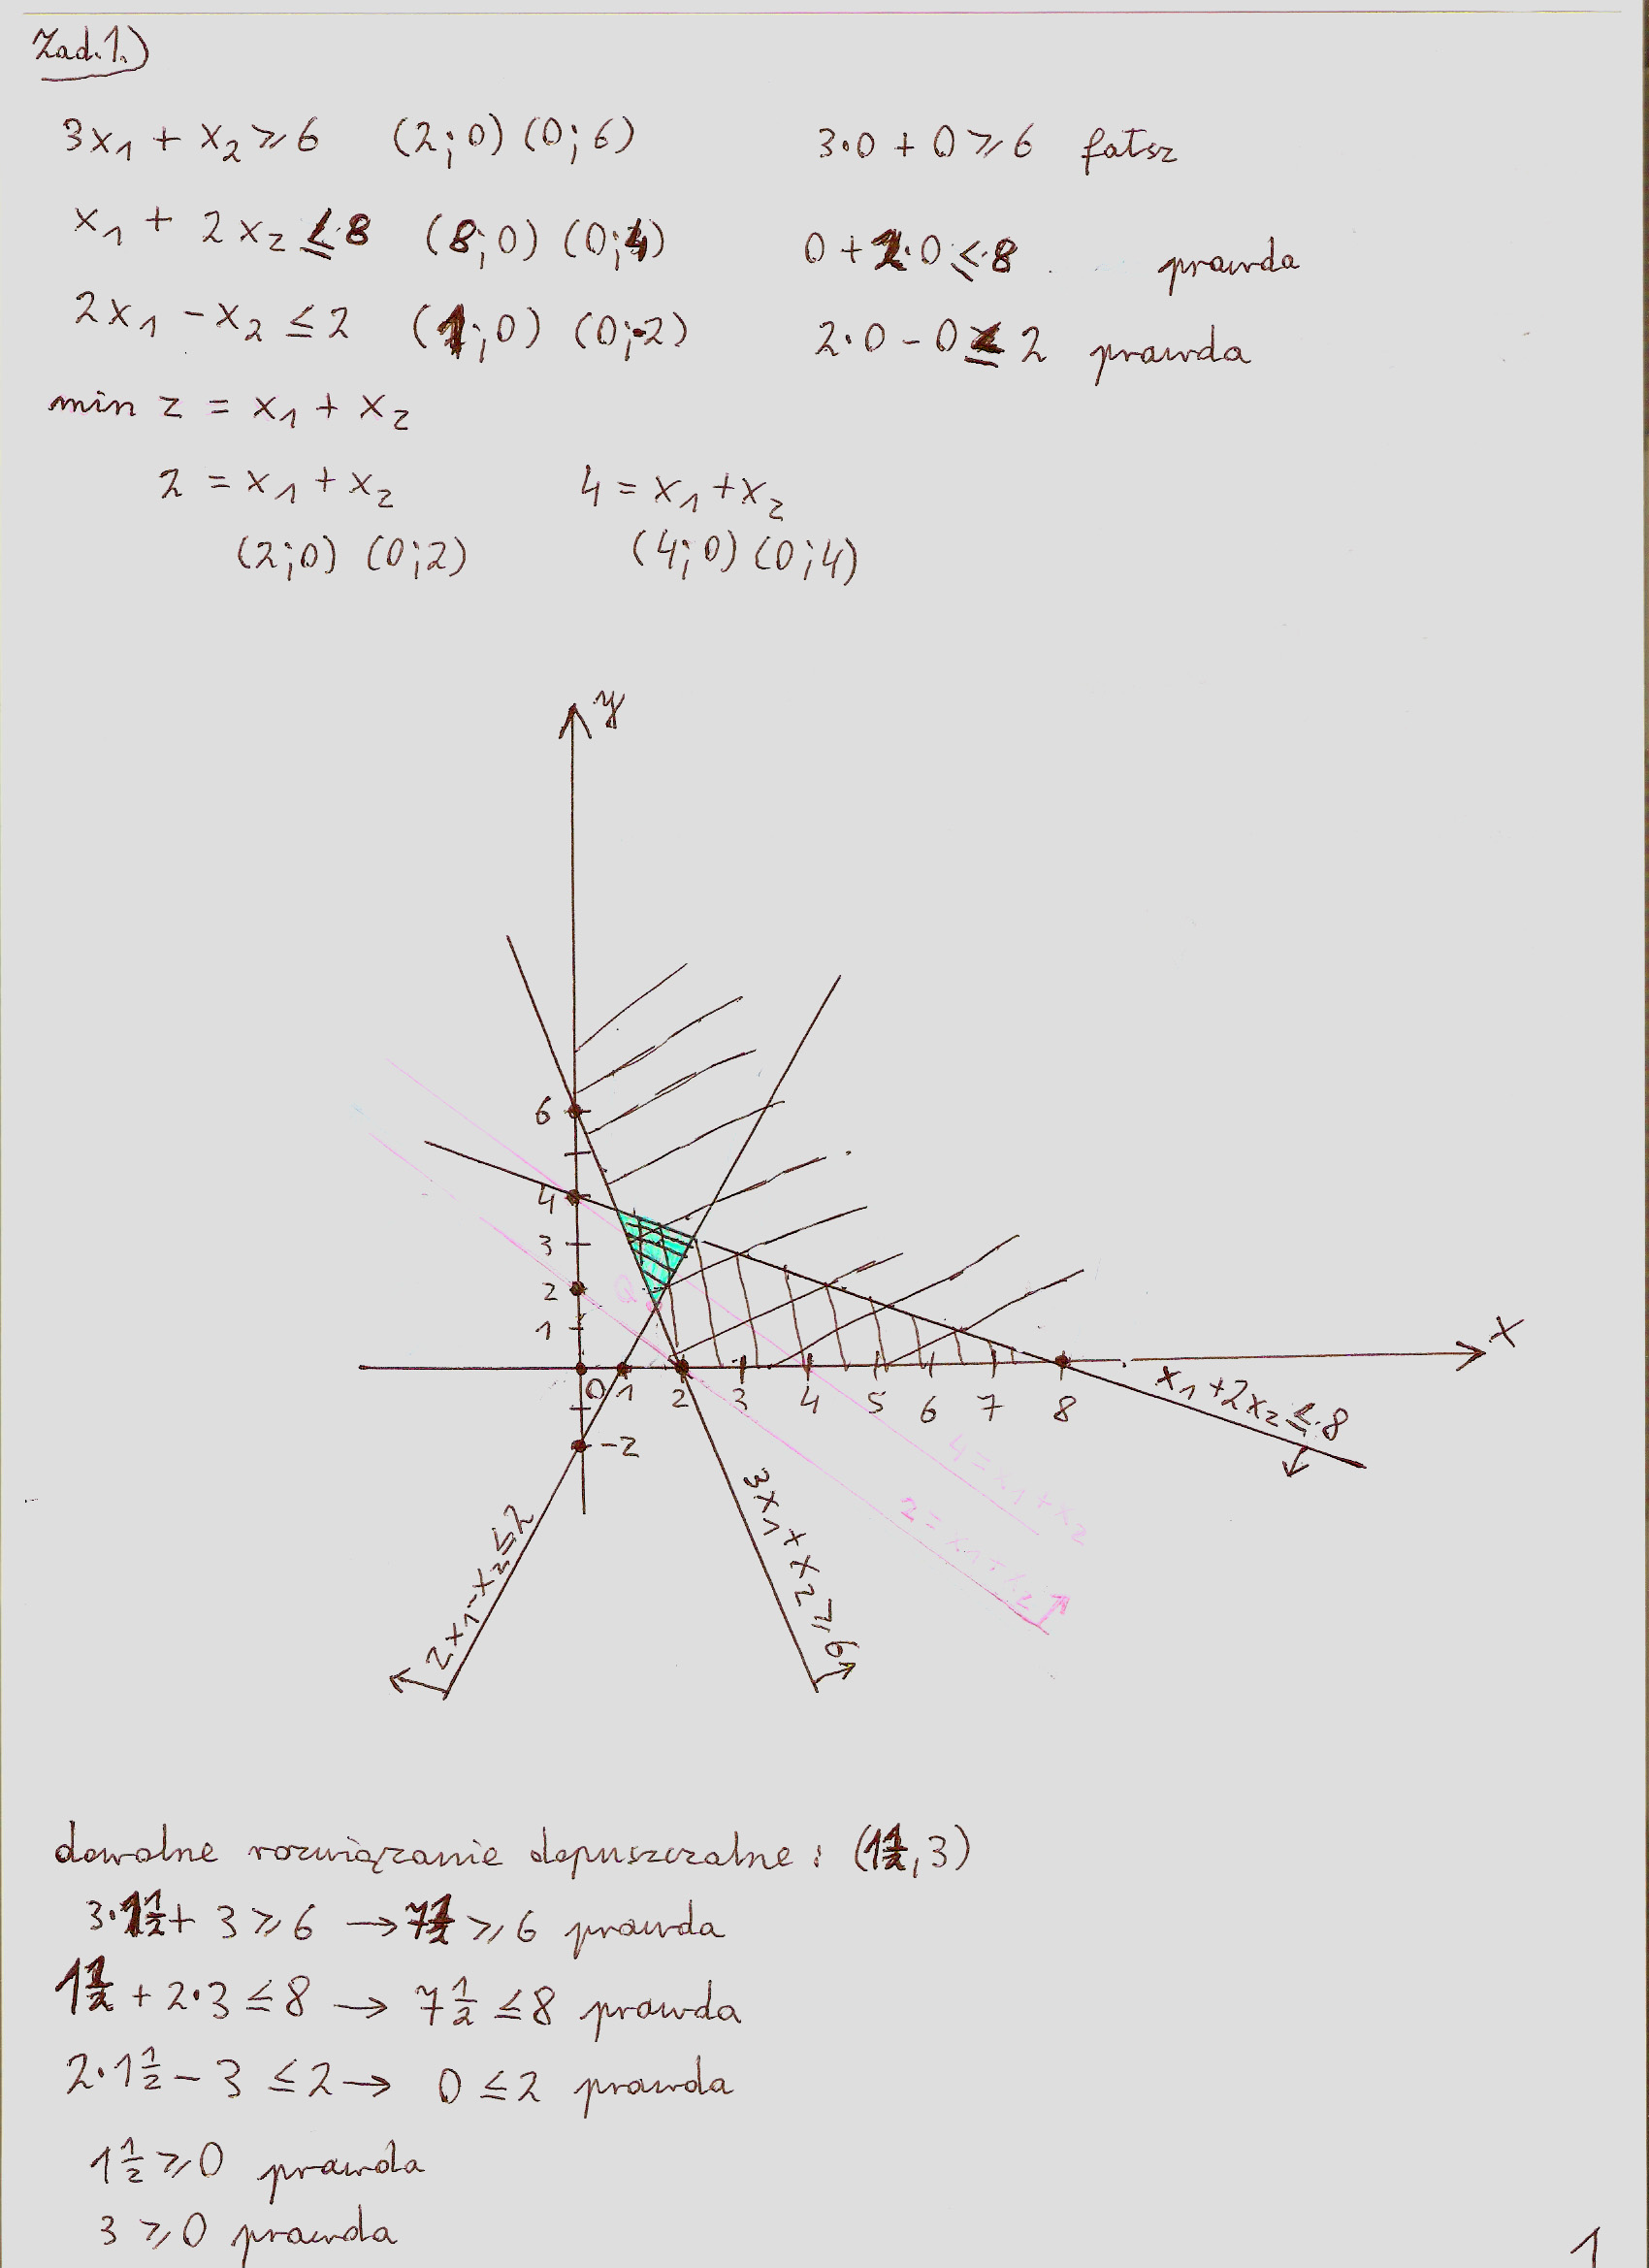 Zad.1.)
3x₁ + x₂ ⩾ 6 (2;0) (0;6) 3·0 + 0 ⩾ 6 fałsz
x₁ + 2x₂ ≤ 8 (8;0) (0;4) 0 + 2·0 ≤ 8 prawda
2x₁ - x₂ ≤ 2 (1;0) (0;-2) 2·0 - 0 ≤ 2 prawda
min z = x₁ + x₂
2 = x₁ + x₂ 4 = x₁ + x₂
(2;0) (0;2) (4;0) (0;4)
y
6
4
3
2
Q
1
x
0 1 2 3 4 5 6 7 8
-2
x₁ + 2x₂ ≤ 8
4 = x₁ + x₂
2 = x₁ + x₂
3x₁ + x₂ ⩾ 6
2x₁ - x₂ ≤ 2
dowolne rozwiązanie dopuszczalne : (1½, 3)
3·1½ + 3 ⩾ 6 → 7½ ⩾ 6 prawda
1½ + 2·3 ≤ 8 → 7½ ≤ 8 prawda
2·1½ - 3 ≤ 2 → 0 ≤ 2 prawda
1½ ⩾ 0 prawda
3 ⩾ 0 prawda
1